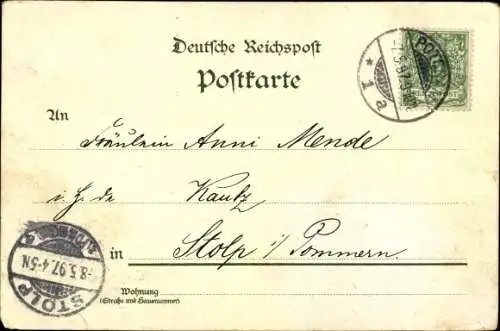 Deutsche Reichspost
Postkarte
* 1 a
An
Fräulein Anni Mende
Kautz
in Stolp i/ Pommern.
STOLP
8.5.97.4-5N
Wohnung
(Straße und Hausnummer)